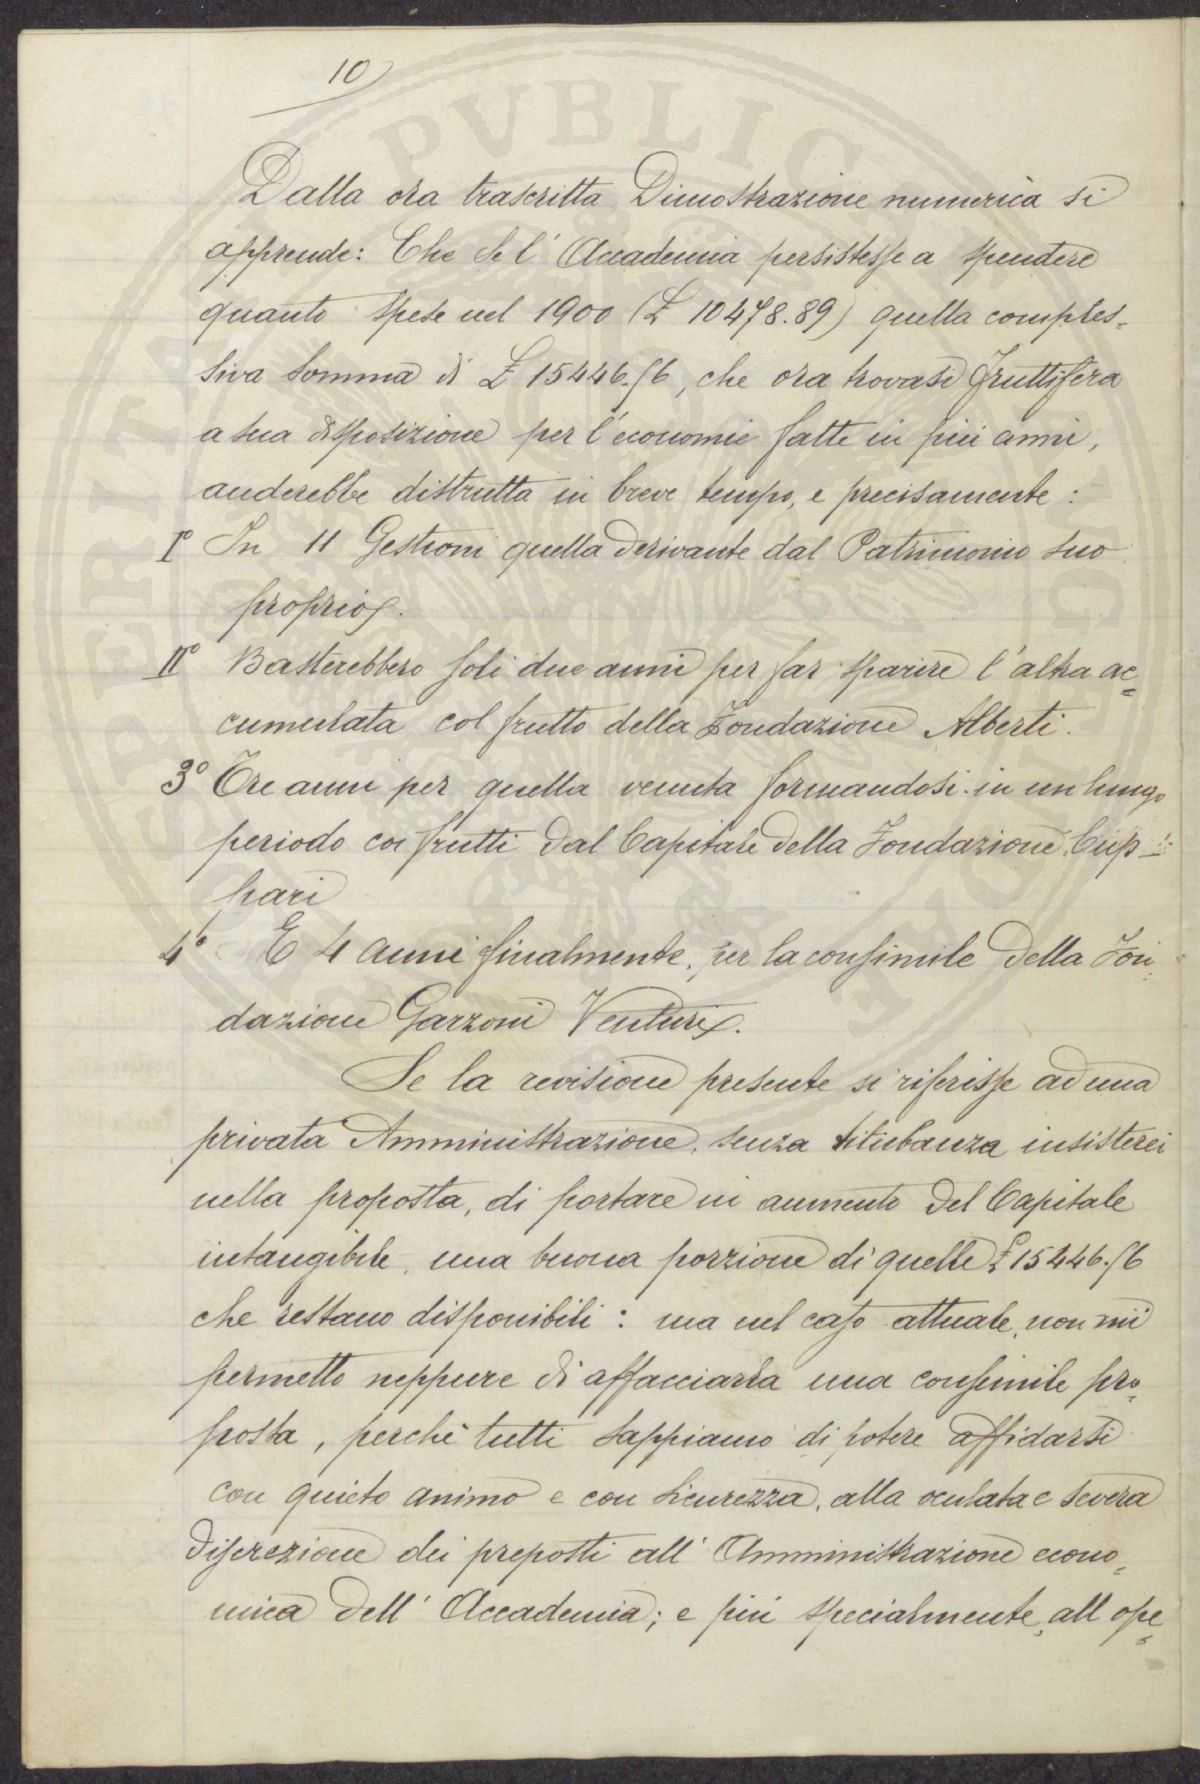 10
Dalla ora trascritta Dimostrazione numerica si
apprende: Che se l'Accademia persistesse a spendere
quanto spese nel 1900 (£ 10478.89) quella comples-
siva somma di £ 15446.56, che ora trovasi fruttifera
a sua disposizione per l'economie fatte in più anni,
anderebbe distrutta in breve tempo, e precisamente:
I° In 11 Gestioni quella derivante dal Patrimonio suo
proprio.
II° Basterebbero soli due anni per far sparire l'altra ac-
cumulata col frutto della Fondazione Alberti.
3° Tre anni per quella venuta formandosi in un lungo
periodo coi frutti dal Capitale della Fondazione Cup-
pari
4° E 4 anni finalmente, per la consimile della Fon-
dazione Garzoni Venturi.
Se la revisione presente si riferisse ad una
privata Amministrazione, senza titubanza insisterei
nella proposta, di portare in aumento del Capitale
intangibile, una buona porzione di quelle £ 15446.56
che restano disponibili: ma nel caso attuale, non mi
permetto neppure di affacciarla una consimile pro-
posta, perchè tutti sappiamo di potere affidarsi
con quieto animo e con sicurezza, alla oculata e severa
discrezione dei preposti all'Amministrazione econo-
mica dell'Accademia; e più specialmente, all ope-
PVBLICAE
PROSPERITATI